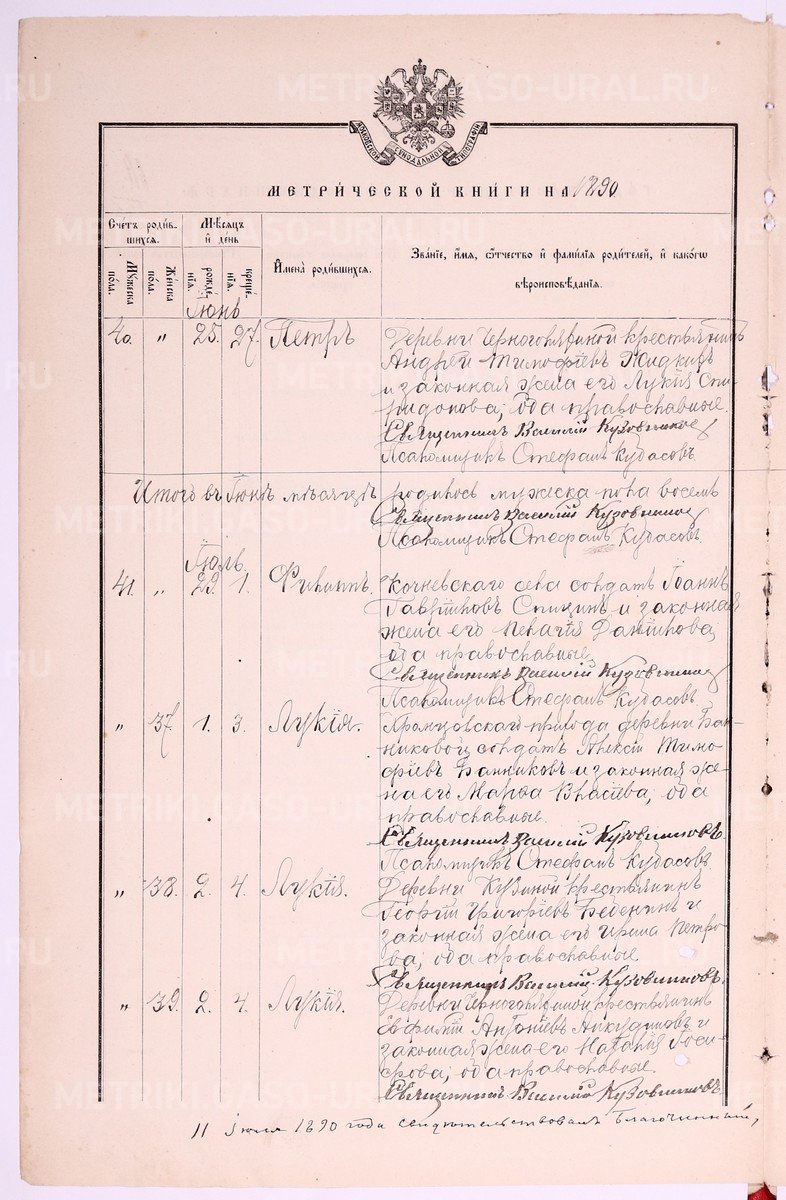 METRIKI.GASO-URAL.RU
МОСКОВСКОЙ СѴНОДАЛЬНОЙ ТИПОГРАФІИ
МЕТРИ́ЧЕСКОЙ КНИ́ГИ НА 1890
Сче́тъ роди́в-
шихся.
Мѣ́сяцъ
и҆ де́нь
И҆мена̀ роди́вшихся.
Зва́нїе, и҆́мя, ѻ҆́тчество и҆ фами́лїя роди́телей, и҆ како́гѡ
вѣроисповѣ́данїѧ.
Мꙋжеска по́ла.
Же́нска по́ла.
рожде́нїя.
креще́нїя.
Іюнь
40. " 25. 27. Петръ Деревни Черноголяфиной крестьянинъ
Андрей Тимофѣевъ Жидкихъ
и законная жена его Лукія Спи-
ридонова; оба православные.
Священникъ Василій Кузовниковъ
Псаломщикъ Стефанъ Кубасовъ.
Итого въ Іюнѣ мѣсяцѣ родилось мужеска пола восемь
Священникъ Василій Кузовниковъ
Псаломщикъ Стефанъ Кубасовъ.
Іюль.
41. " 29. 1. Филиппъ. Кочневскаго села солдатъ Іоаннъ
Гавріиловъ Спицинъ и законная
жена его Пелагія Даніилова;
оба православные.
Священникъ Василій Кузовниковъ
Псаломщикъ Стефанъ Кубасовъ.
" 37. 1. 3. Лукія. прихода деревни Бан-
никовой солдатъ Алексій Тимо-
фѣевъ Банниковъ и законная же-
на его Марѳа Власіева; оба
православные.
Священникъ Василій Кузовниковъ.
Псаломщикъ Стефанъ Кубасовъ
" 38. 2. 4. Лукія. Деревни Кузиной крестьянинъ
Георгій Григоріевъ Бебенинъ и
законная жена его Ирина Петро-
ва; оба православные.
Священникъ Василій Кузовниковъ.
" 39. 2. 4. Лукія. Деревни крестьянинъ
Евфимій Антоніевъ и
законная жена его Наталія
оба православные.
Священникъ Василій Кузовниковъ
11 іюля 1890 года свидѣтельствовалъ Благочинный,